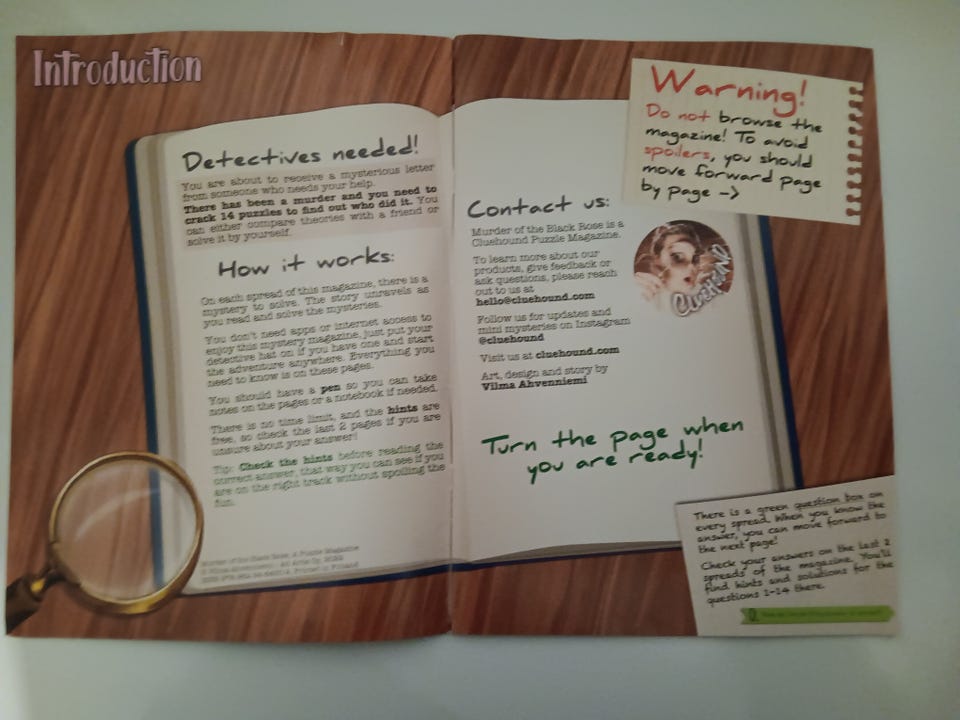 Introduction
Detectives needed!
You are about to receive a mysterious letter
from someone who needs your help.
There has been a murder and you need to
crack 14 puzzles to find out who did it. You
can either compare theories with a friend or
solve it by yourself.
How it works:
On each spread of this magazine, there is a
mystery to solve. The story unravels as
you read and solve the mysteries.
You don't need apps or internet access to
enjoy this mystery magazine, just put your
detective hat on if you have one and start
the adventure anywhere. Everything you
need to know is on these pages.
You should have a pen so you can take
notes on the pages or a notebook if needed.
There is no time limit, and the hints are
free, so check the last 2 pages if you are
unsure about your answer!
Tip: Check the hints before reading the
correct answer, that way you can see if you
are on the right track without spoiling the
fun.
Murder of the Black Rose, A Puzzle Magazine
Printed in Finland
Warning!
Do not browse the
magazine! To avoid
spoilers, you should
move forward page
by page ->
Contact us:
Murder of the Black Rose is a
Cluehound Puzzle Magazine.
To learn more about our
products, give feedback or
ask questions, please reach
out to us at
hello@cluehound.com
Follow us for updates and
mini mysteries on Instagram
@cluehound
Visit us at cluehound.com
Art, design and story by
Vilma Ahvenniemi
CLUEHOUND
Turn the page when
you are ready!
There is a green question box on
every spread. When you know the
answer, you can move forward to
the next page!
Check your answers on the last 2
spreads of the magazine. You'll
find hints and solutions for the
questions 1-14 there.